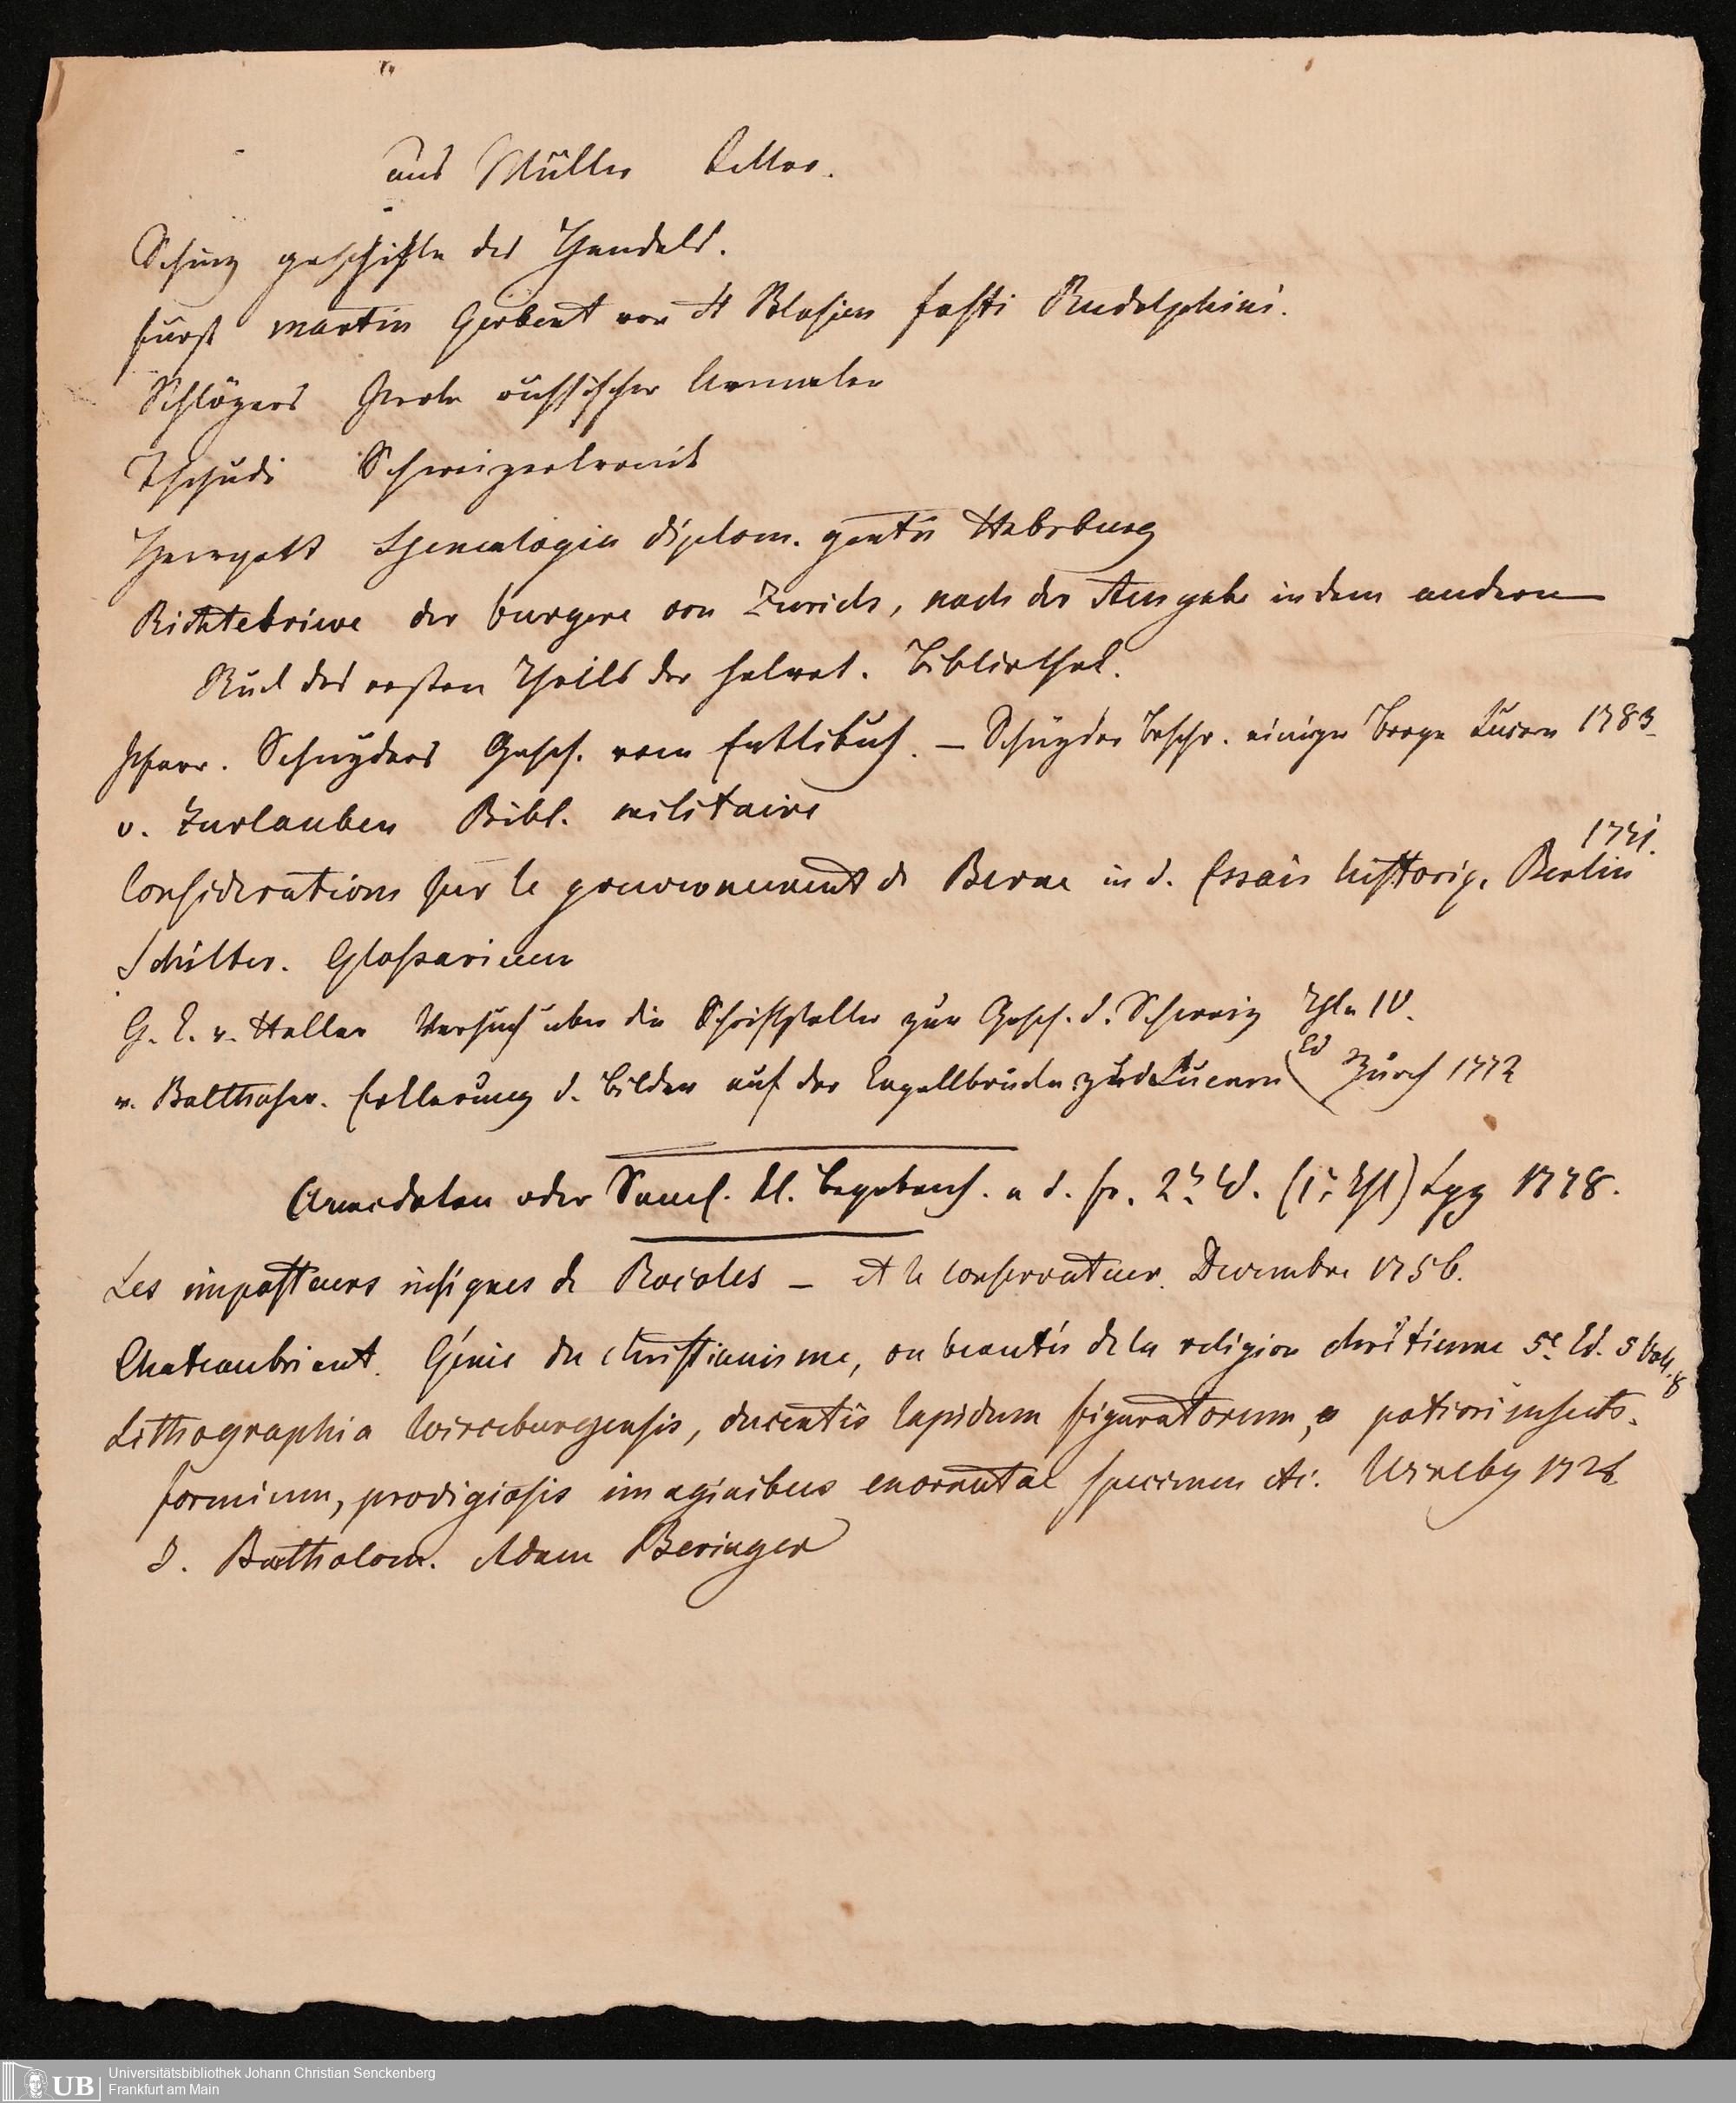 aus Müller
Schinz geschichte des Handels.
fürst martin Gerbert von St Blasien fasti Rudolphini.
Schlözers russischer Annalen
Tschudi Schweizerkronik
Herrgott Genealogia diplom. gentis Habsburg
Richtebriewe der burgere von Zurich, nach der Ausgabe in dem andern
Stück des ersten Theils der helvet. Bibliothek.
Pfarr. Schnyders Gesch. vom Entlibuch. – Schnyder Beschr. einiger Berge Lucern 1783
v. Zurlauben Bibl. militaire
1781.
Considerations sur le gouvernement de Berne in d. Essais historiq. Berlin
Schilter. Glossarium
G. E. v. Haller Versuch über die Schriftsteller zur Gesch. d. Schweiz Thle IV.
v. Balthasar. Erklarung d. Bilder auf der Capellbrücke zu Lucern Zürch 1772
Anecdoten oder Saml. kl. Begebenh. a d. fr. 2r Bd. (1r Thl) Lpz 1778.
Les imposteurs insignes de Rocoles – et le conservateur. Decembre 1756.
Chateaubriant. Génie du christianisme, ou beautés de la religion chrétienne 5e Ed. 5 Vol. 8
Lithographia Wirceburgensis, ducentis lapidum figuratorum, a potiori insecti-
formium, prodigiosis imaginibus exornatae specimen etc. Wirceby 1726
D. Bartholom. Adam Beringer
UB
Universitätsbibliothek Johann Christian Senckenberg
Frankfurt am Main